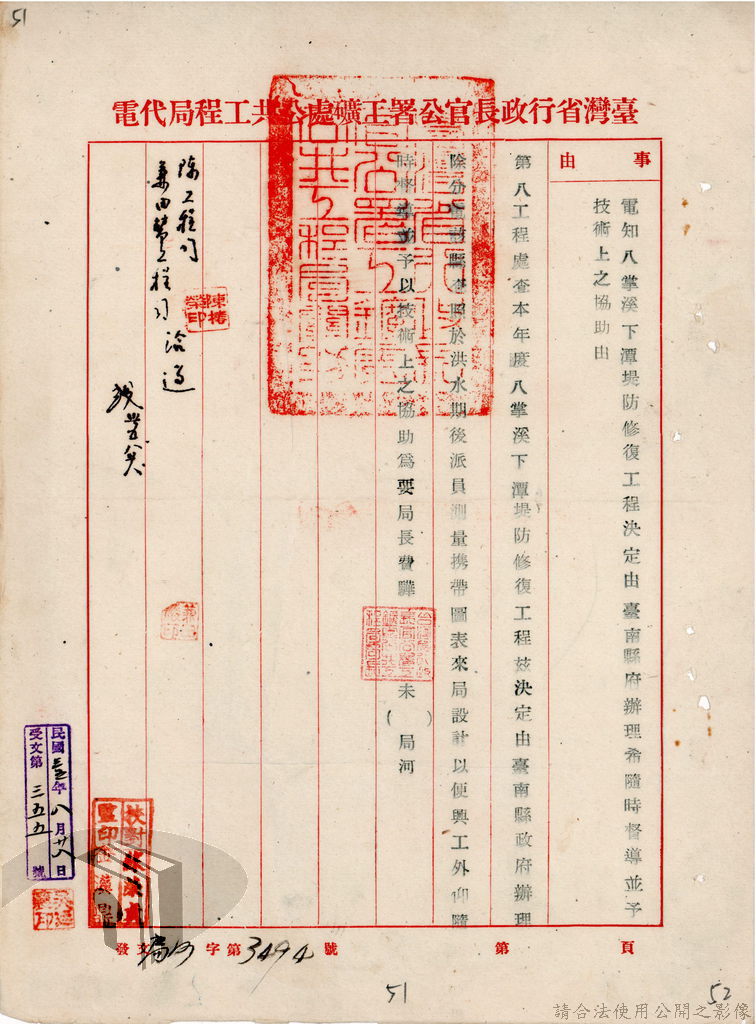 51
臺灣省行政長官公署工礦處公共工程局代電
事由
電知八掌溪下潭堤防修復工程決定由臺南縣府辦理希隨時督導並予
技術上之協助由
第八工程處查本年度八掌溪下潭堤防修復工程茲決定由臺南縣政府辦理
除分電該縣查照於洪水期後派員測量携帶圖表來局設計以便興工外仰隨
時督導並予以技術上之協助為要局長費驊 未( )局河
陳工程司
兼由
工程司洽過
校對
監印
民國三五年八月廿八日
受文第三五五號
發文局河字第3494號
第 頁
51
52
請合法使用公開之影像